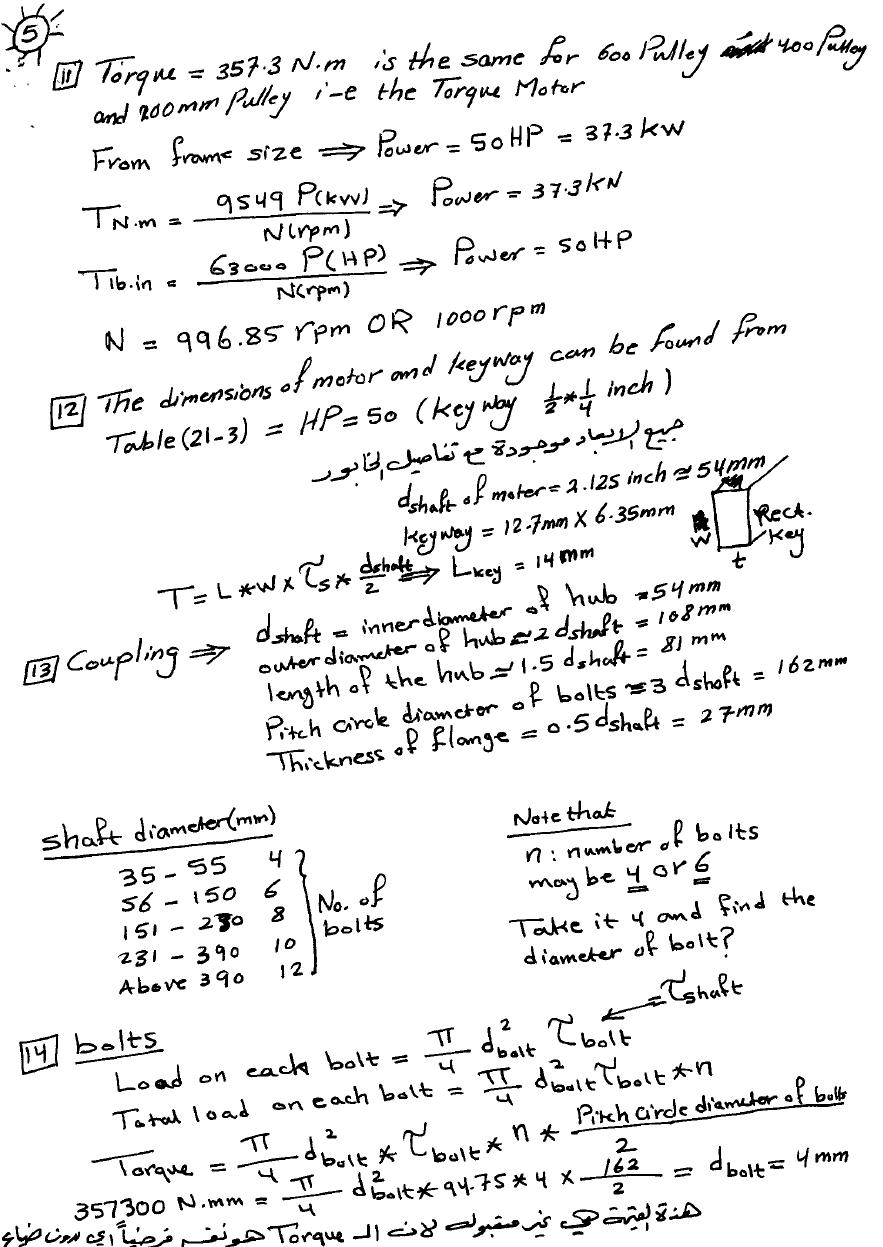 5
11 Torque = 357.3 N.m is the same for 600 Pulley 400 Pulley
and 200mm Pulley i-e the Torque Motor
From frame size ⟹ Power = 50HP = 37.3 kW
T N.m = 9549 P(kW) / N(rpm) ⟹ Power = 37.3kN
T lb.in = 63000 P(HP) / N(rpm) ⟹ Power = 50HP
N = 996.85 rpm OR 1000rpm
12 The dimensions of motor and keyway can be found from
Table (21-3) = HP=50 (key way 1/2 * 1/4 inch)
جميع الابعاد موجودة مع تفاصيل الخابور
dshaft of moter = 2.125 inch ≈ 54mm
Keyway = 12.7mm X 6.35mm
W
Rect.
Key
t
T = L * W x τs * dshaft / 2 ⟹ Lkey = 14mm
13 Coupling ⟹ dshaft = inner diameter of hub = 54mm
outer diameter of hub ≈ 2 dshaft = 108mm
length of the hub ≈ 1.5 dshaft = 81 mm
Pitch circle diameter of bolts ≈ 3 dshaft = 162mm
Thickness of flange = 0.5 dshaft = 27mm
shaft diameter (mm)
35 - 55 4
56 - 150 6
151 - 230 8
231 - 390 10
Above 390 12
No. of
bolts
Note that
n : number of bolts
may be 4 or 6
Take it 4 and find the
diameter of bolt?
= τshaft
14 bolts
Load on each bolt = π/4 d²bolt τbolt
Total load on each bolt = π/4 d²bolt τbolt * n
Torque = π/4 d²bolt * τbolt * n * Pitch circle diameter of bolts / 2
357300 N.mm = π/4 d²bolt * 94.75 * 4 x 162/2 = dbolt = 4mm
هذة القيمة هي غير مقبوله لان الـ Torque هو نفسه فرضياً اي بدون ضياع